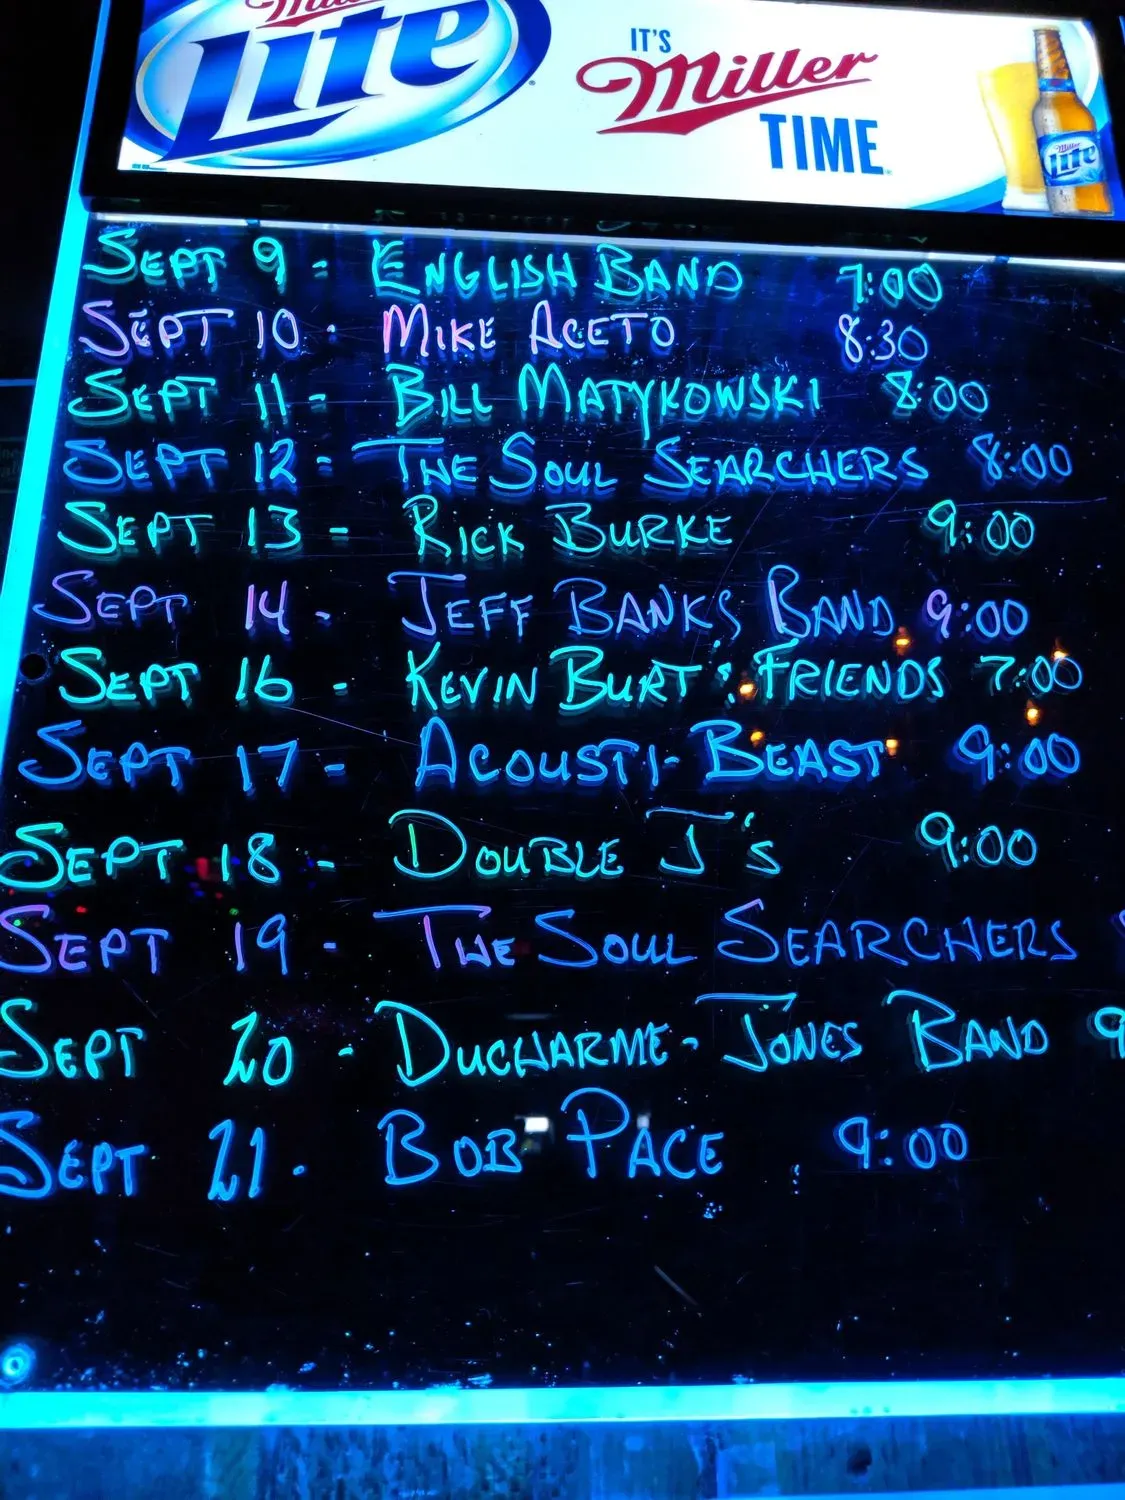 Miller
Lite
IT'S
Miller
TIME
Miller
Lite
SEPT 9 - ENGLISH BAND 7:00
SEPT 10 - MIKE ACETO 8:30
SEPT 11 - BILL MATYKOWSKI 8:00
SEPT 12 - THE SOUL SEARCHERS 8:00
SEPT 13 - RICK BURKE 9:00
SEPT 14 - JEFF BANKS BAND 9:00
SEPT 16 - KEVIN BURT'S FRIENDS 7:00
SEPT 17 - ACOUSTI-BEAST 9:00
SEPT 18 - DOUBLE J'S 9:00
SEPT 19 - THE SOUL SEARCHERS
SEPT 20 - DUCHARME-JONES BAND 9
SEPT 21 - BOB PACE 9:00